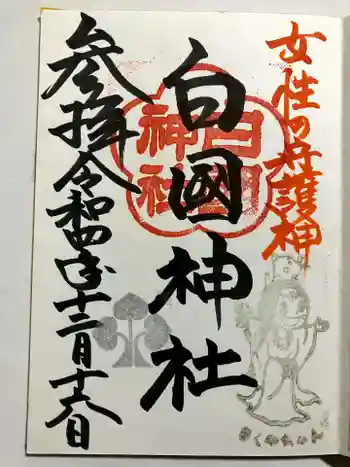 女性の守護神
白國神社
白国神社
参拝令和四年十二月十八日
さくやちゃん